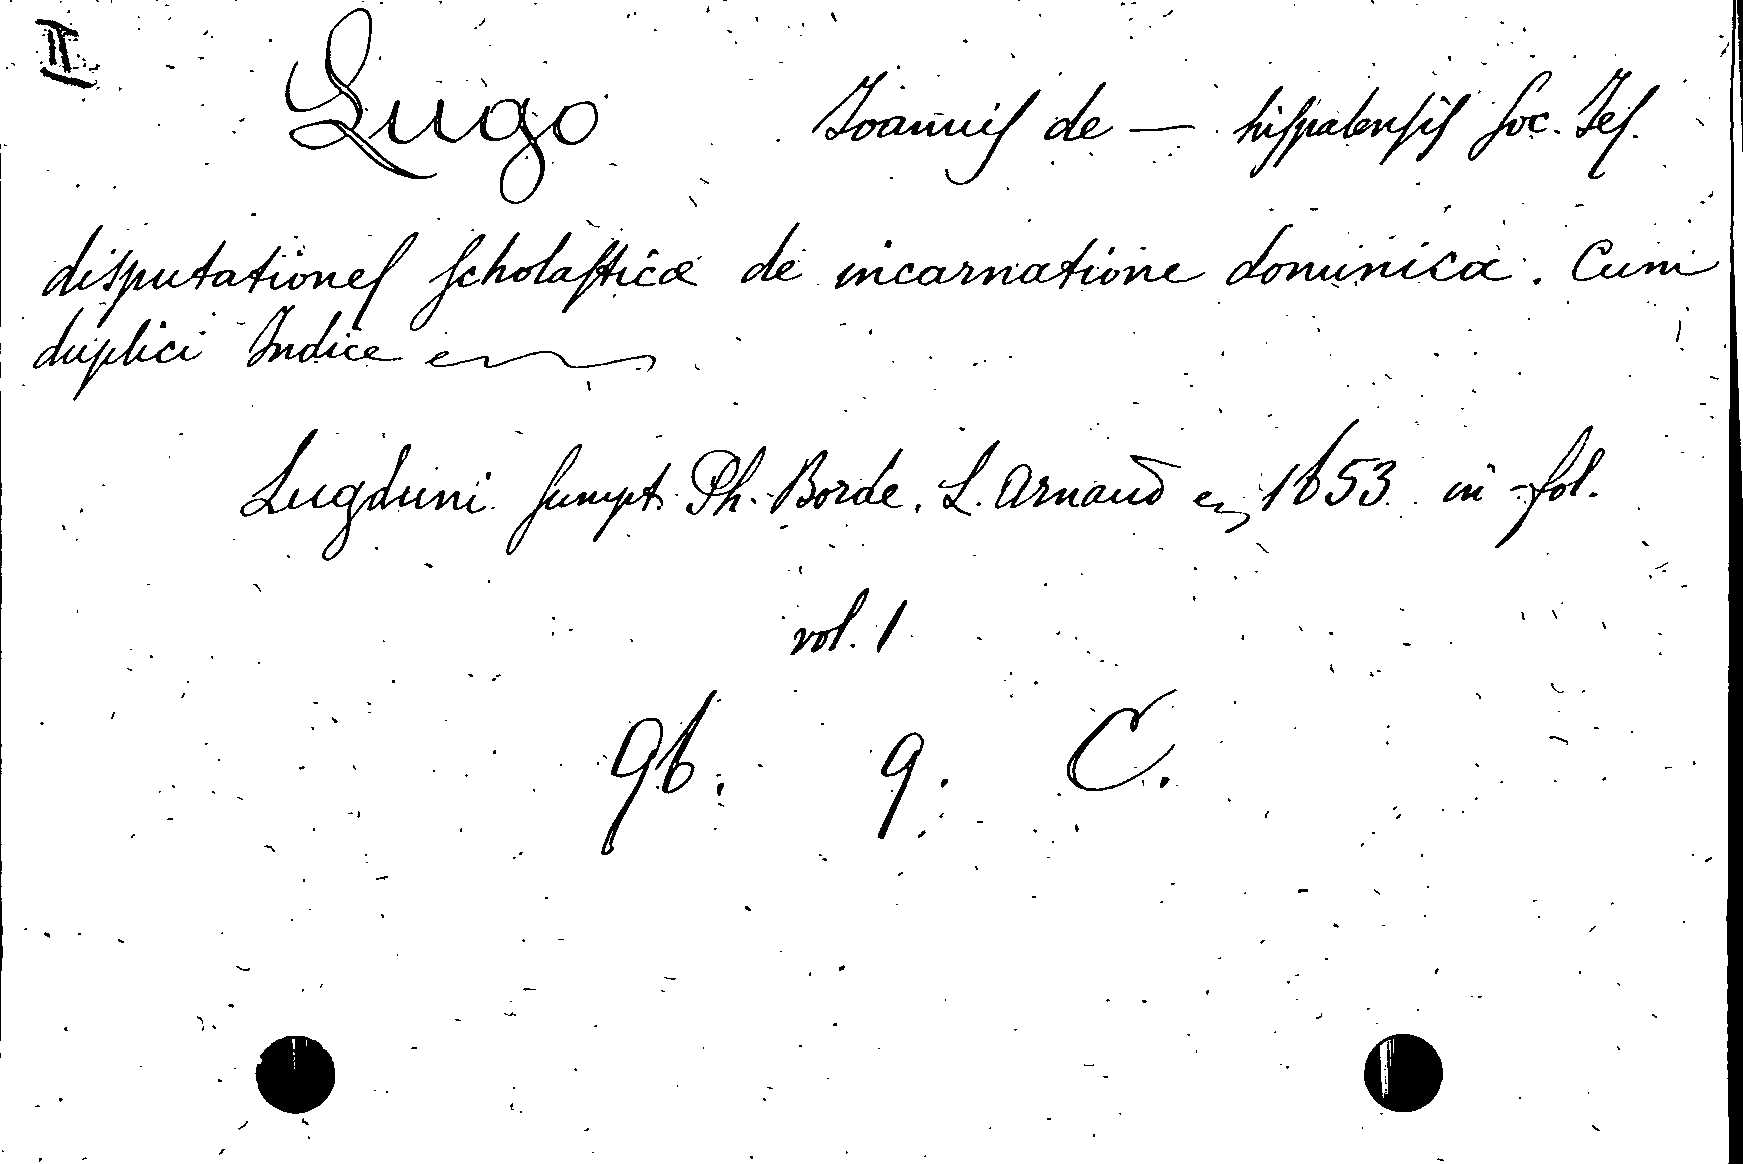 II
Lugo Joannis de — hispalensis Soc. Jes.
disputationes scholasticæ de incarnatione dominica. Cum
duplici Indice
Lugduni sumpt. Ph. Borde. L. Arnaud 1653 in-fol.
vol. 1
96. 9. C.